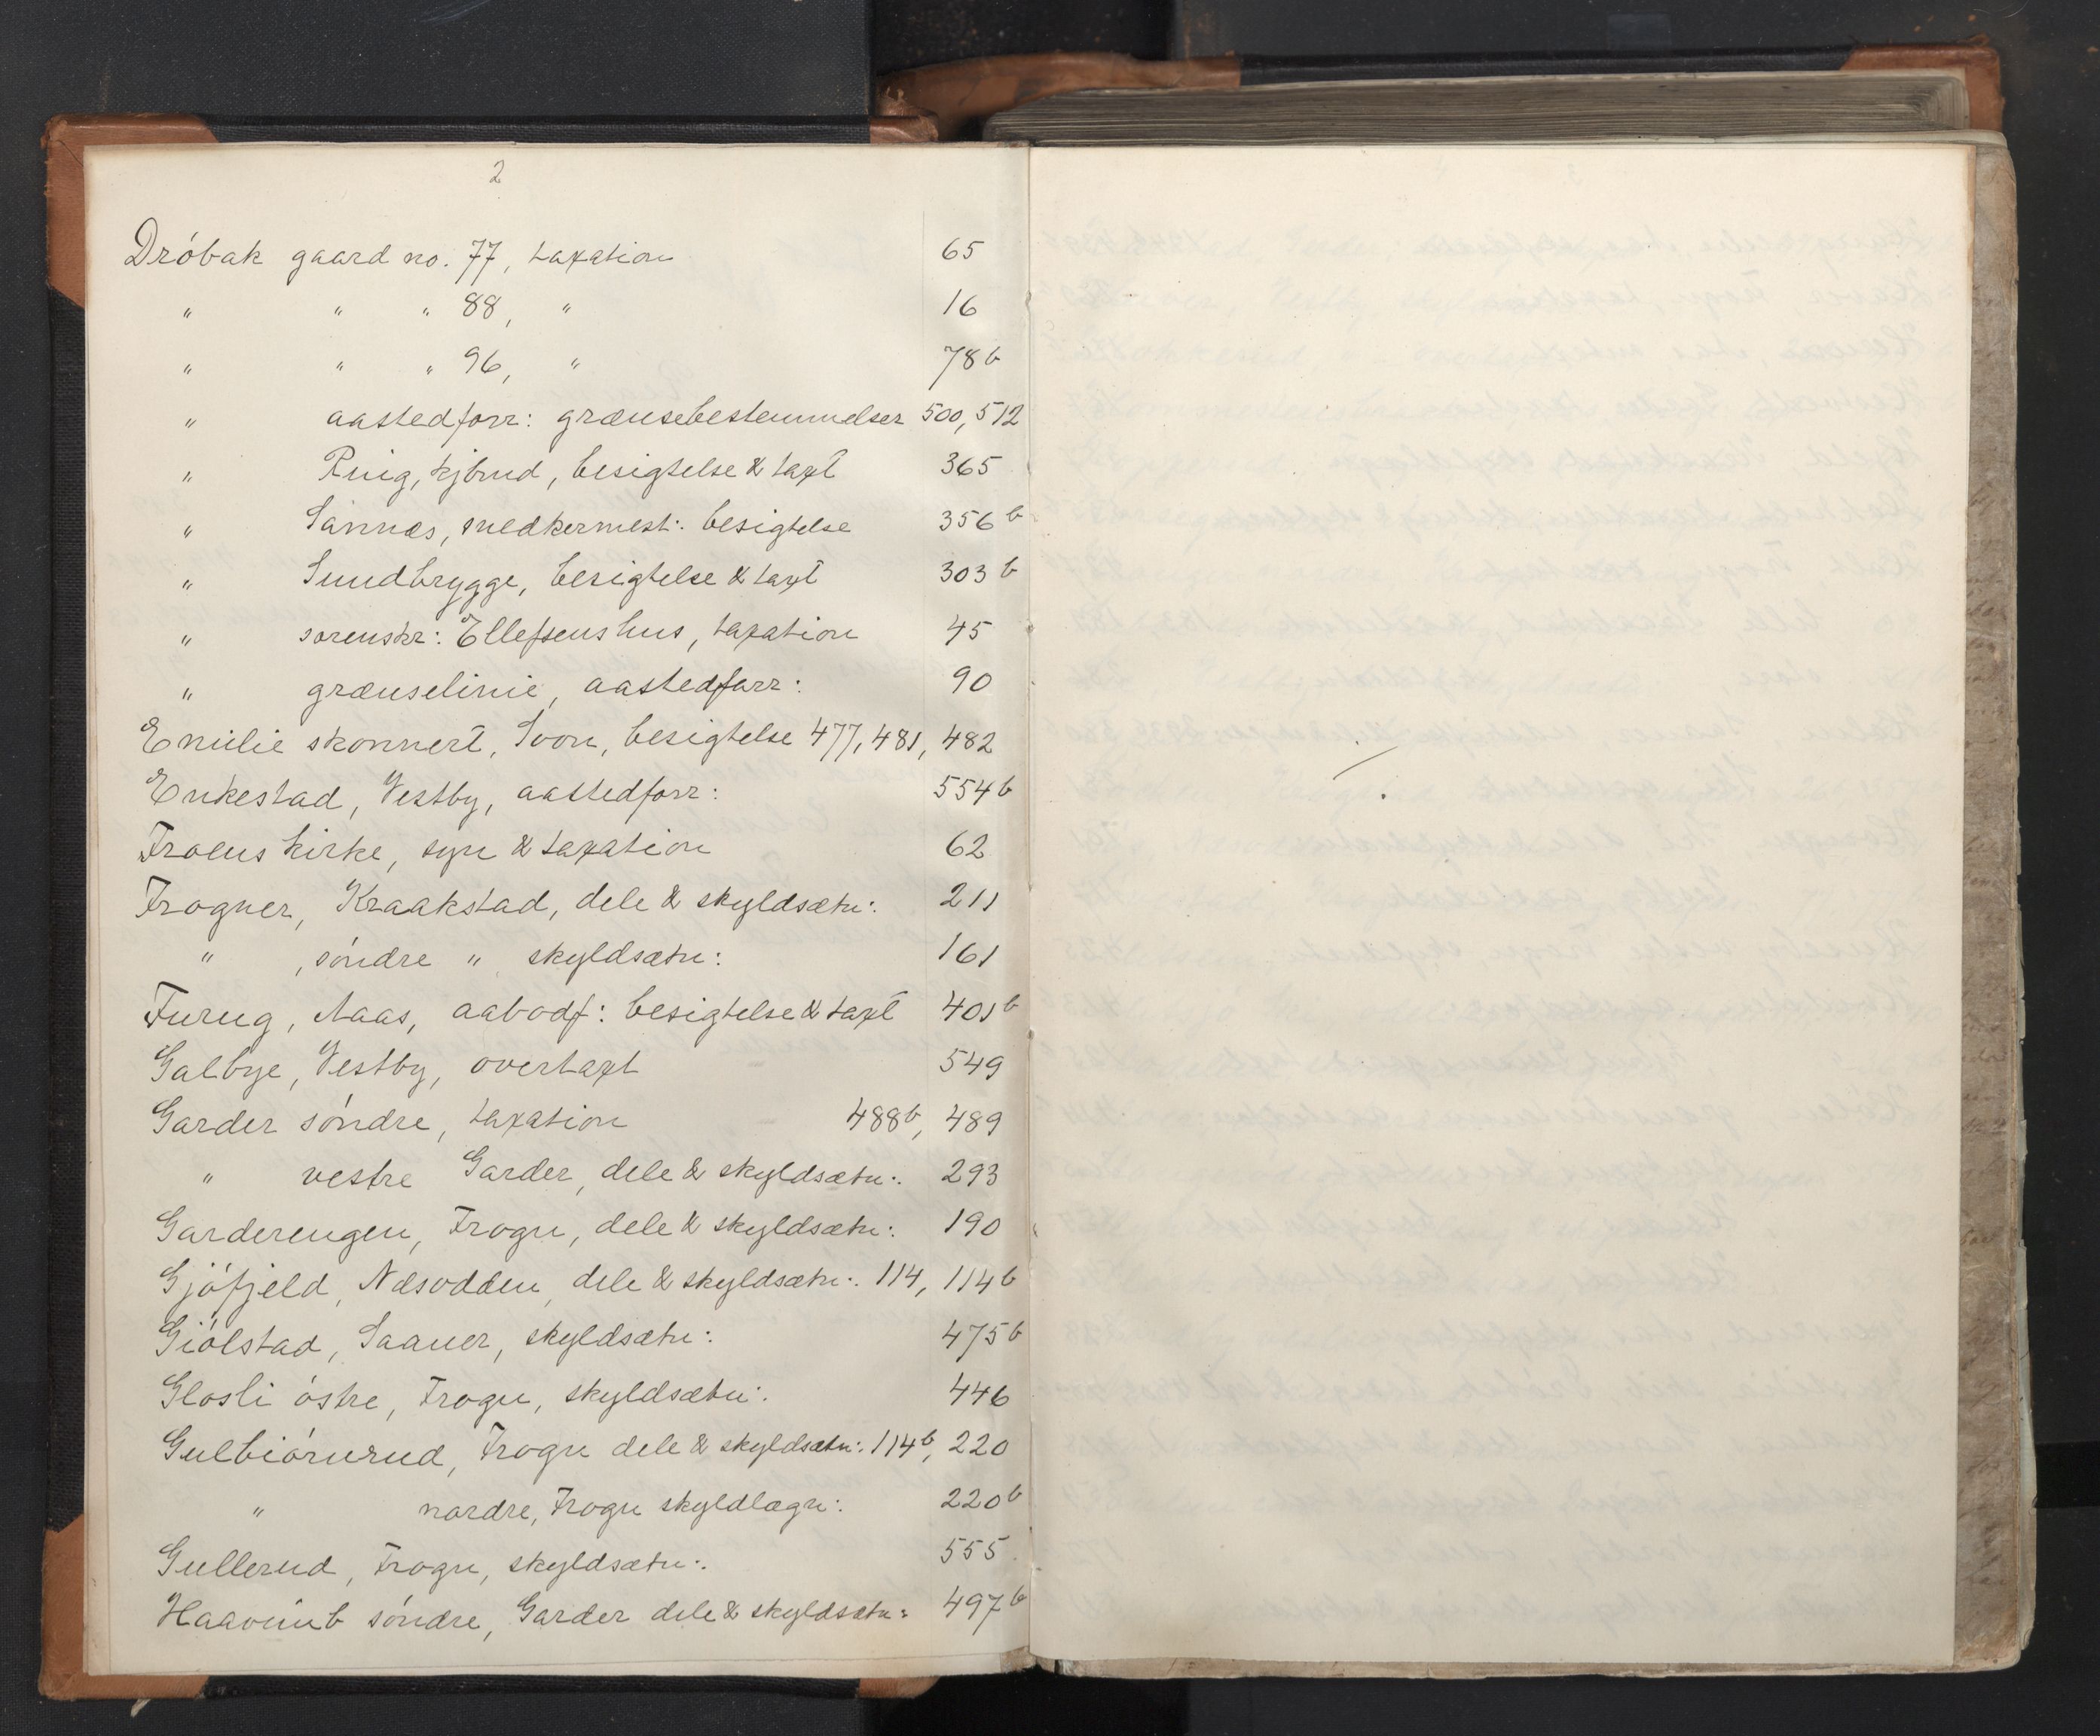 2
Dróbak gaard no. 77, taxation 65
" " " 88, " 16
" " " 96, " 78b
" aastedforr: grænsebestemmelser 500, 512
" Ring, kjbmd, besigtelse & taxt 365
" Sannæs, snedkermest: besigtelse 356b
" Sundbrygge, besigtelse & taxt 303b
" sorenskr: Ellefsens hus, taxation 45
" grænselinie, aastedforr: 90
Emilie skonnert, Soon, besigtelse 477, 481, 482
Enkestad, Vestby, aastedforr: 554b
Froens kirke, syn & taxation 62
Frogner, Kraakstad, dele & skyldsætn: 211
" , søndre " skyldsætn: 161
Furug, Aaas, aabodf: besigtelse & taxt 401b
Galbye, Vestby, overtaxt 549
Garder søndre, taxation 488b, 489
" vestre Garder, dele & skyldsætn: 293
Garderengen, Frogn, dele & skyldsætn: 190
Gjófjeld, Næsodden, dele & skyldsætn: 114, 114b
Giólstad, Saaner, skyldsætn: 475b
Glosli óstre, Frogn, skyldsætn: 446
Gulbiórnrud, Frogn dele & skyldsætn: 114b, 220
" nordre, Frogn skyldlægn: 220b
Gullerud, Frogn, skyldsætn: 555
Haavimb søndre, Garder dele & skyldsætn: 497b